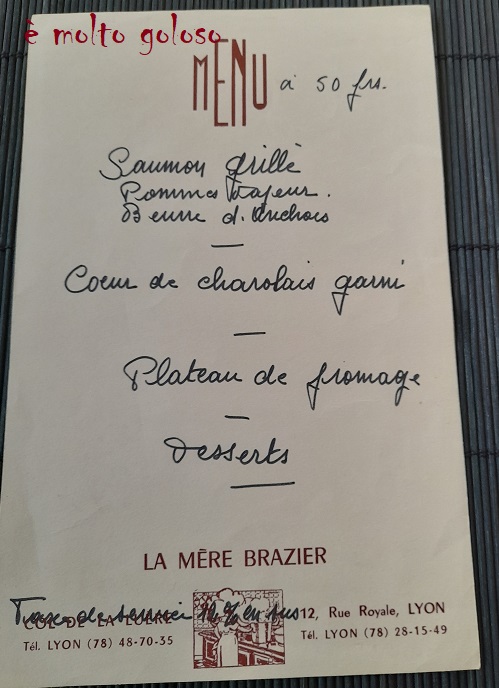 è molto goloso
MENU à 50 frs.
Saumon grillé
Pommes Vapeur.
Beurre d'Anchois
Coeur de charolais garni
Plateau de fromage
Desserts
LA MÈRE BRAZIER
Taxe de service 12% en sus
COL DE LA LUÈRE
12, Rue Royale, LYON
Tél. LYON (78) 48-70-35
Tél. LYON (78) 28-15-49